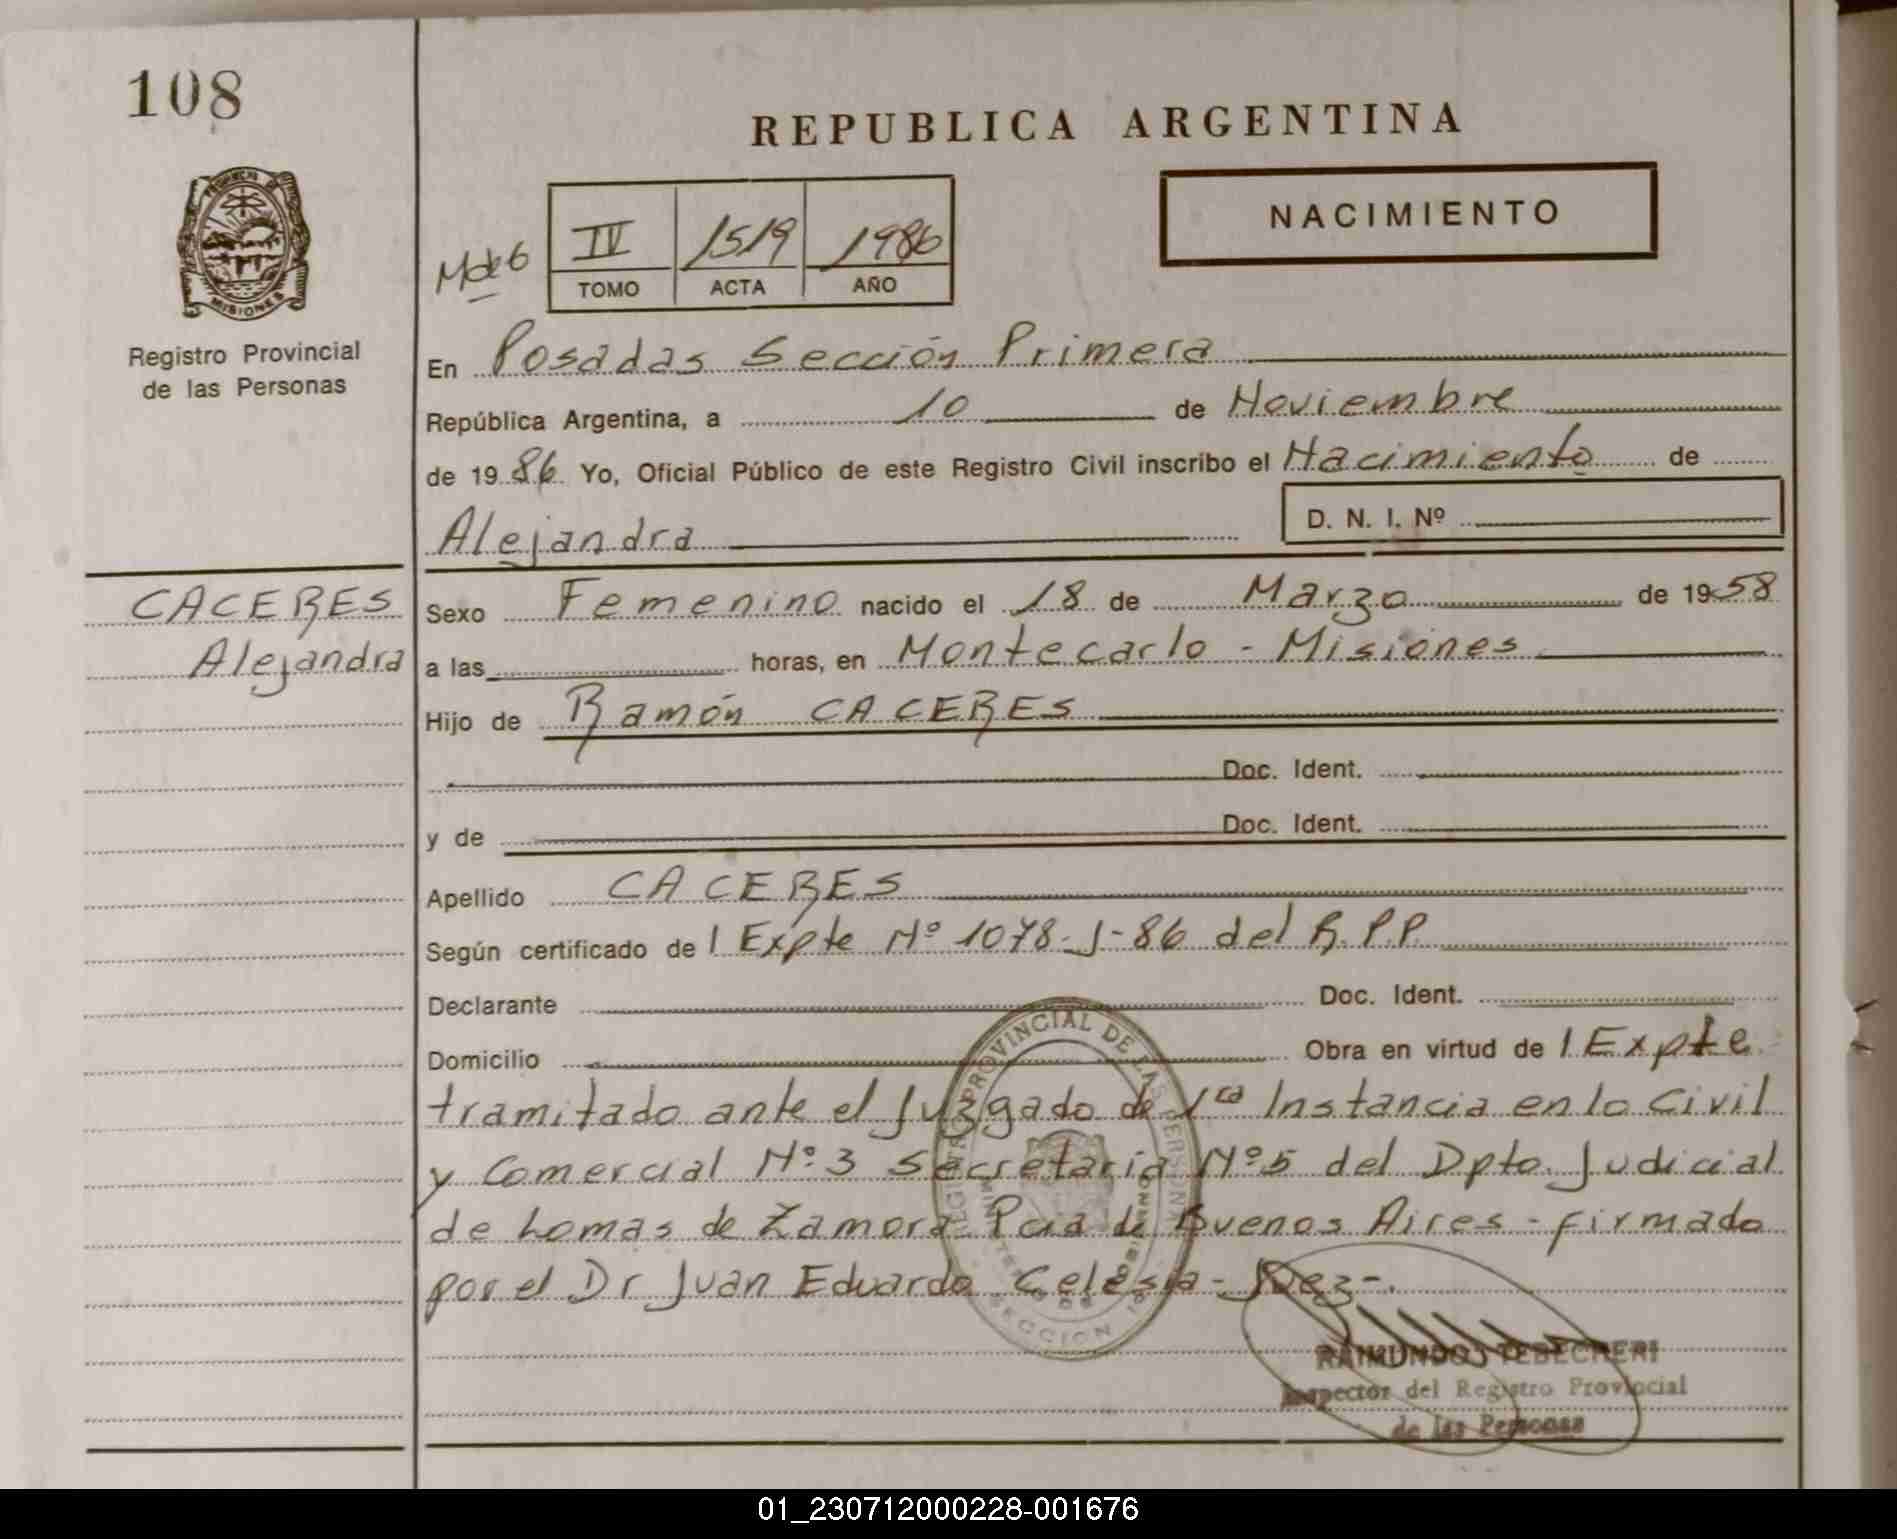 108
REPUBLICA ARGENTINA
NACIMIENTO
PROVINCIA DE
MISIONES
Registro Provincial
de las Personas
IV 1519 1986
TOMO ACTA AÑO
En Posadas Sección Primera
República Argentina, a 10 de Noviembre
de 1986 Yo, Oficial Público de este Registro Civil inscribo el Nacimiento de
Alejandra D. N. I. Nº
CACERES
Alejandra
Sexo Femenino nacido el 18 de Marzo de 1958
a las horas, en Montecarlo - Misiones
Hijo de Ramón CACERES
Doc. Ident.
y de Doc. Ident.
Apellido CACERES
Según certificado de | Expte Nº 1078-J-86 del R.P.P.
Declarante Doc. Ident.
Domicilio Obra en virtud de | Expte
tramitado ante el Juzgado de 1ra Instancia en lo Civil
y Comercial Nº 3 Secretaria Nº 5 del Dpto. Judicial
de Lomas de Zamora Pcia de Buenos Aires - firmado
por el Dr Juan Eduardo Celesia - Juez-.
RAIMUNDO J TEBECHERI
Inspector del Registro Provincial
de las Personas
01_230712000228-001676